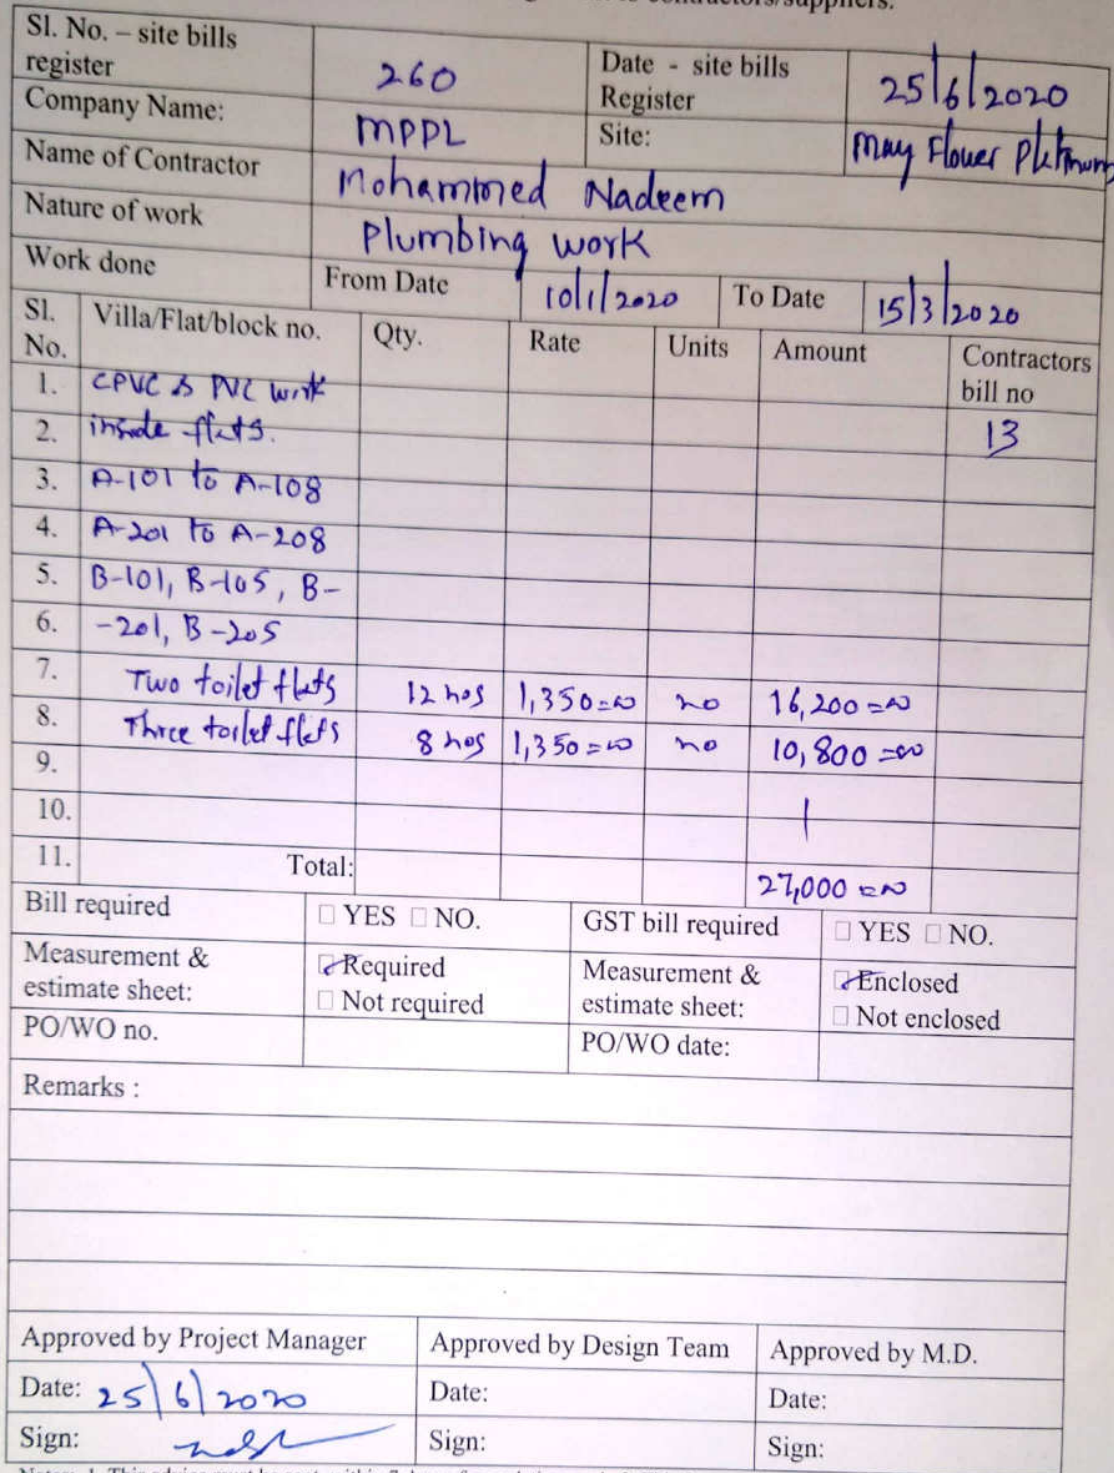 contractors/suppliers.
Sl. No. – site bills register 260 Date - site bills Register 25/6/2020
Company Name: MPPL Site: May Flower Platinum
Name of Contractor Mohammed Nadeem
Nature of work Plumbing work
Work done From Date 10/1/2020 To Date 15/3/2020
Sl. No. Villa/Flat/block no. Qty. Rate Units Amount Contractors bill no
1. CPVC & PVC work
2. inside flats. 13
3. A-101 to A-108
4. A-201 to A-208
5. B-101, B-105, B-
6. -201, B-205
7. Two toilet flats 12 nos 1,350=00 no 16,200=00
8. Three toilet flats 8 nos 1,350=00 no 10,800=00
9.
10.
11. Total: 27,000=00
Bill required □ YES □ NO. GST bill required □ YES □ NO.
Measurement & estimate sheet: ☑ Required □ Not required Measurement & estimate sheet: ☑ Enclosed □ Not enclosed
PO/WO no. PO/WO date:
Remarks :
Approved by Project Manager Approved by Design Team Approved by M.D.
Date: 25/6/2020 Date: Date:
Sign: Sign: Sign: